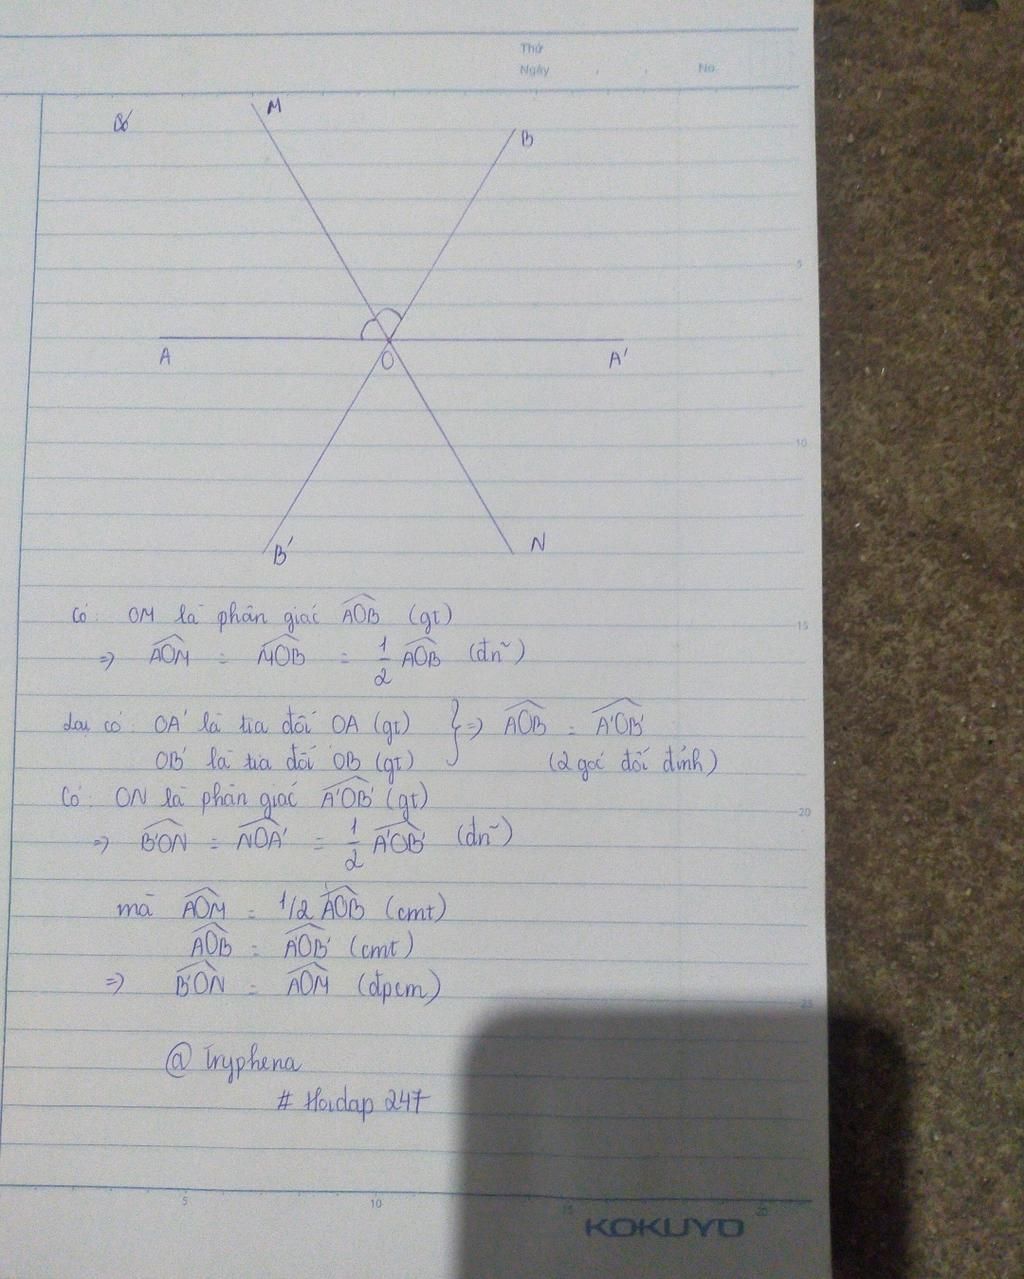 Thứ
Ngày . . No.
M
B
A
O
A'
B'
N
5
10
15
20
25
Có: OM là phân giác AOB (gt)
=> AOM = MOB = 1/2 AOB (đn~)
Lại có: OA' là tia đối OA (gt) } => AOB = A'OB'
OB' là tia đối OB (gt) (2 góc đối đỉnh)
Có: ON là phân giác A'OB' (gt)
=> B'ON = NOA' = 1/2 A'OB' (đn~)
mà AOM = 1/2 AOB (cmt)
AOB = A'OB' (cmt)
=> B'ON = AOM (đpcm)
@ Tryphena
# Hoidap 247
5 10 15 20
KOKUYO